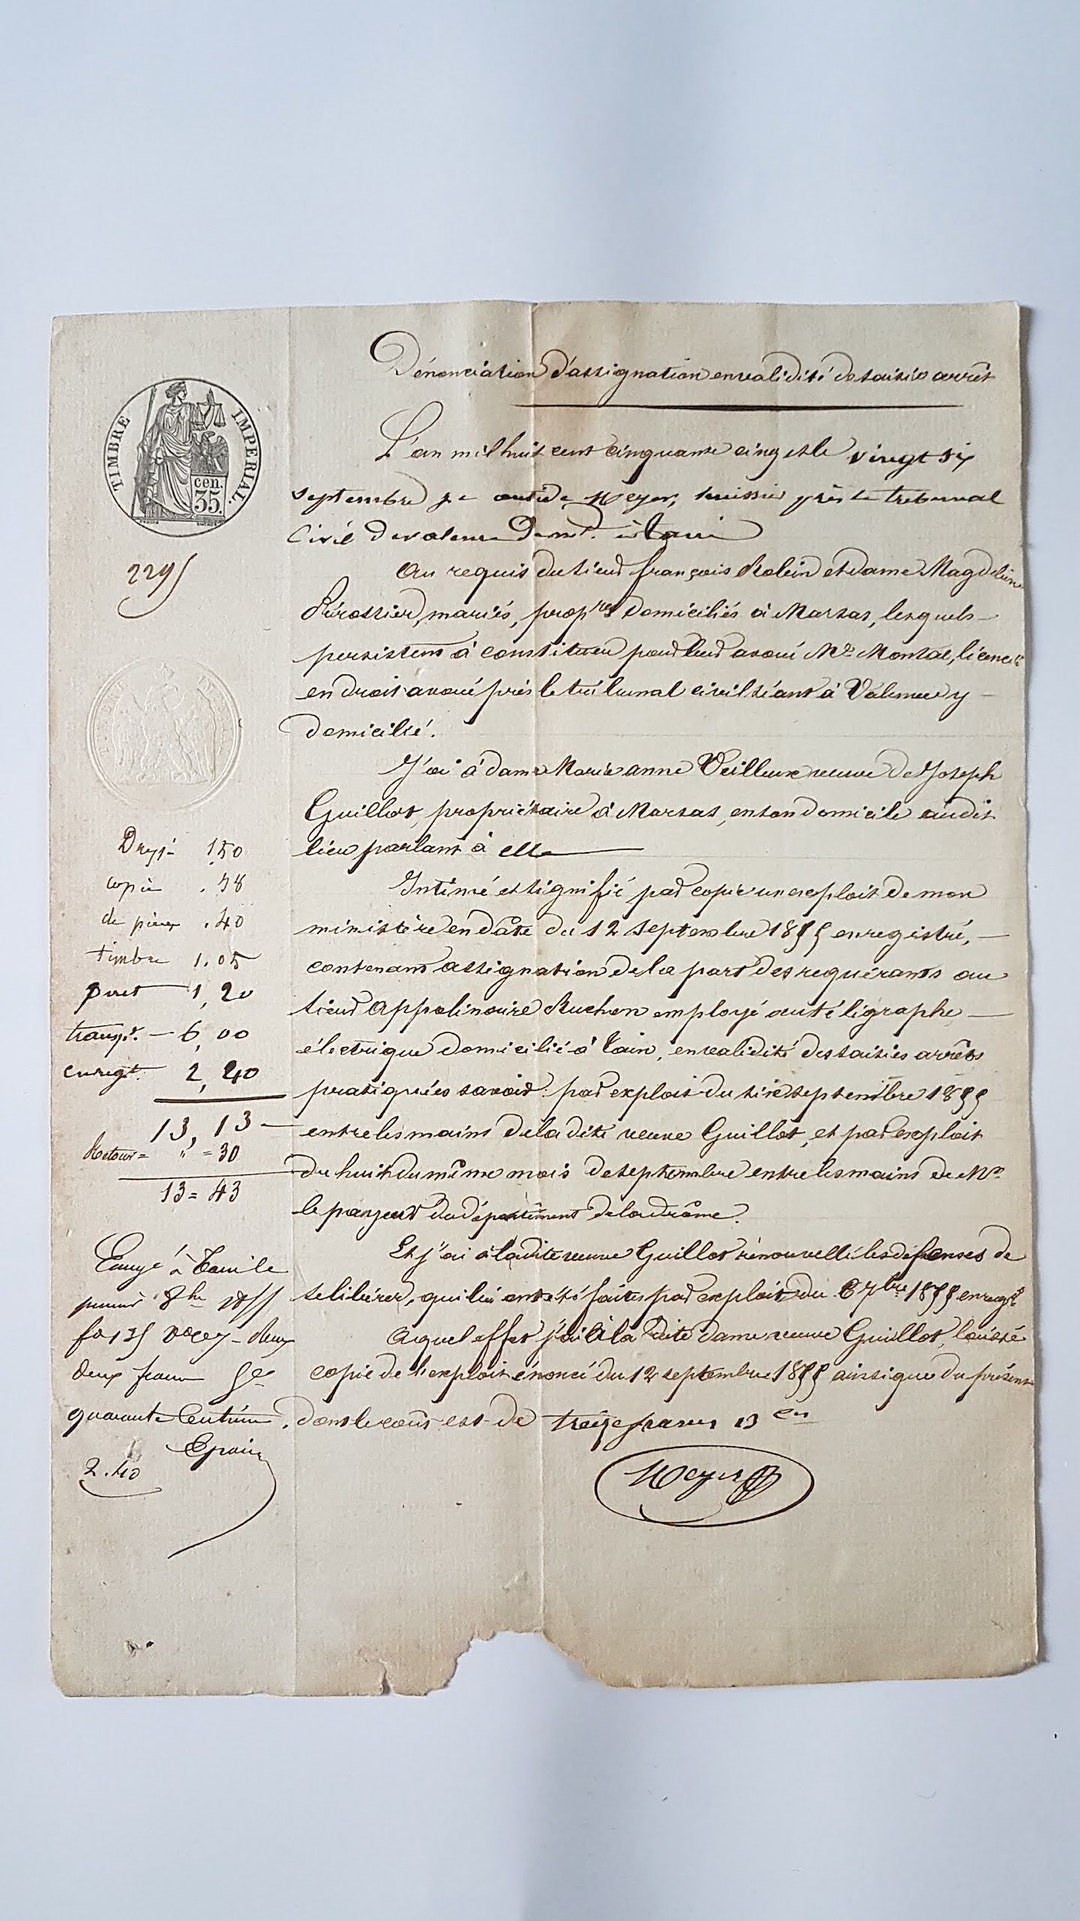 Dénonciation d'assignation en validité de saisie arrêt
TIMBRE IMPERIAL
cen. 35.
L'an mil huit cent cinquante cinq et le vingt six
septembre je Meyer, huissier près le tribunal
Civil de valence à tain
au requis du sieur françois Robin et dame Magdelaine
mariés, prop.res domiciliés à Marsas, lesquels
persistent à constituer pour leur avoué Me licencié
en droit avoué près le tribunal civil séant à Valence y
domicilié.
J'ai à dame Marie anne Veilleux veuve de Joseph
Guillot, propriétaire à Marsas, en son domicile audit
lieu parlant à elle
Intimé et signifié par copie un exploit de mon
ministère en date du 12 septembre 1855 enregistré,
contenant assignation de la part des requérants au
sieur Appolinaire Ruchon employé au téligraphe
électrique domicilié à tain, en validité des saisies arrêts
pratiquées savoir: par exploit du six septembre 1855
entre les mains de la dite veuve Guillot, et par exploit
du huit du même mois de septembre entre les mains de Mr
le payeur du département de la drôme.
Et j'ai à la dite veuve Guillot rénouvellé les défenses de
se libérer, qui lui ont été faites par exploit du 7bre 1855 enregé
a quel effet j'ai à la dite dame veuve Guillot, laissé
copie de l'exploit énoncé du 12 septembre 1855 ainsi que du présent
dont le coût est de treize francs 13 ces
Meyer
2295
1.50
copie .58
de pièces .40
timbre 1.05
1,20
transpt. 6,00
enregt. 2,40
13,13
Retour = " = 30
13 = 43
Enregé à Tain le
premier 8bre 1855
fo 135 reçu
deux francs
quarante Centimes.
2.40